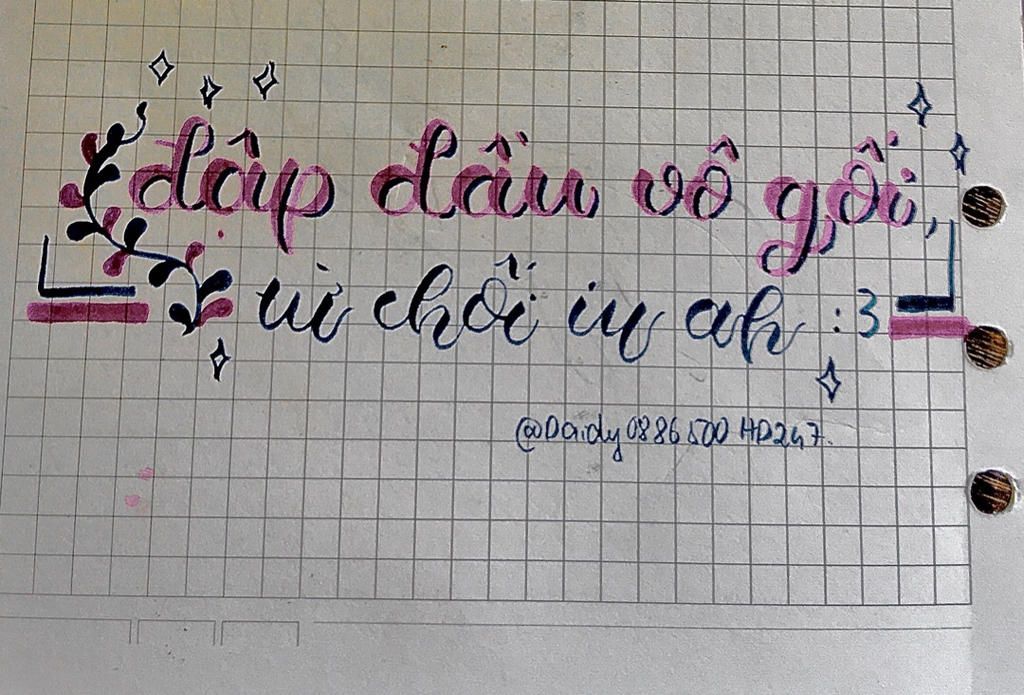 đập đầu vô gối,
ùi chối iu ah :3
@Daidy0886500HD247.